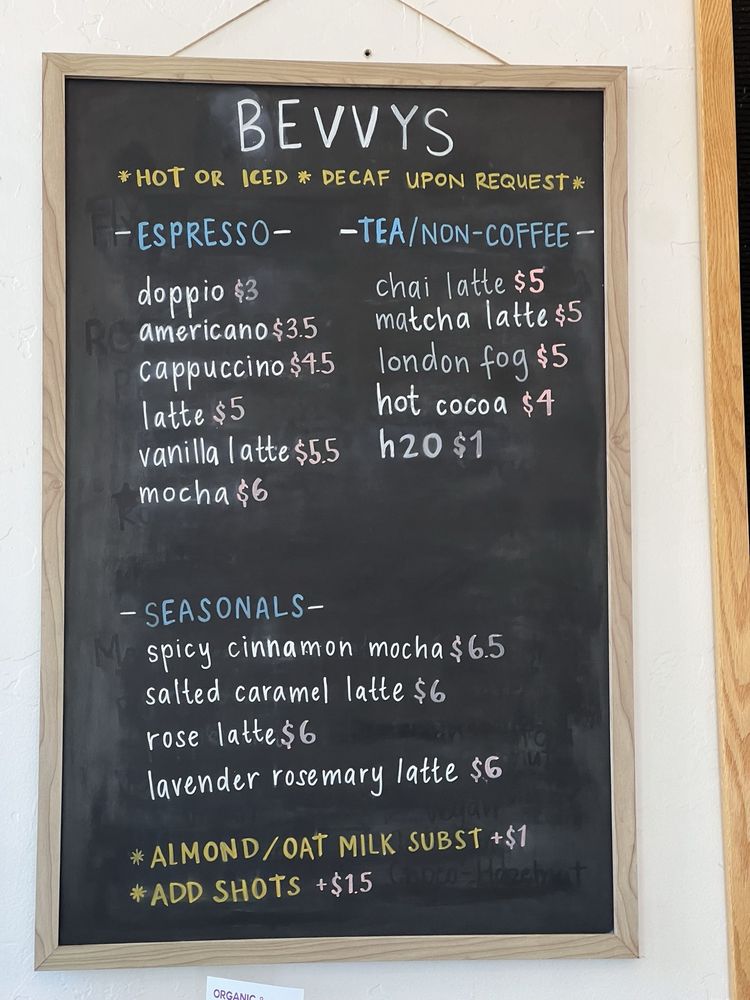 BEVVYS
*HOT OR ICED * DECAF UPON REQUEST*
-ESPRESSO-
doppio $3
americano $3.5
cappuccino $4.5
latte $5
vanilla latte $5.5
mocha $6
-TEA/NON-COFFEE-
chai latte $5
matcha latte $5
london fog $5
hot cocoa $4
h20 $1
-SEASONALS-
spicy cinnamon mocha $6.5
salted caramel latte $6
rose latte $6
lavender rosemary latte $6
*ALMOND/OAT MILK SUBST +$1
*ADD SHOTS +$1.5
vegan
ORGANIC